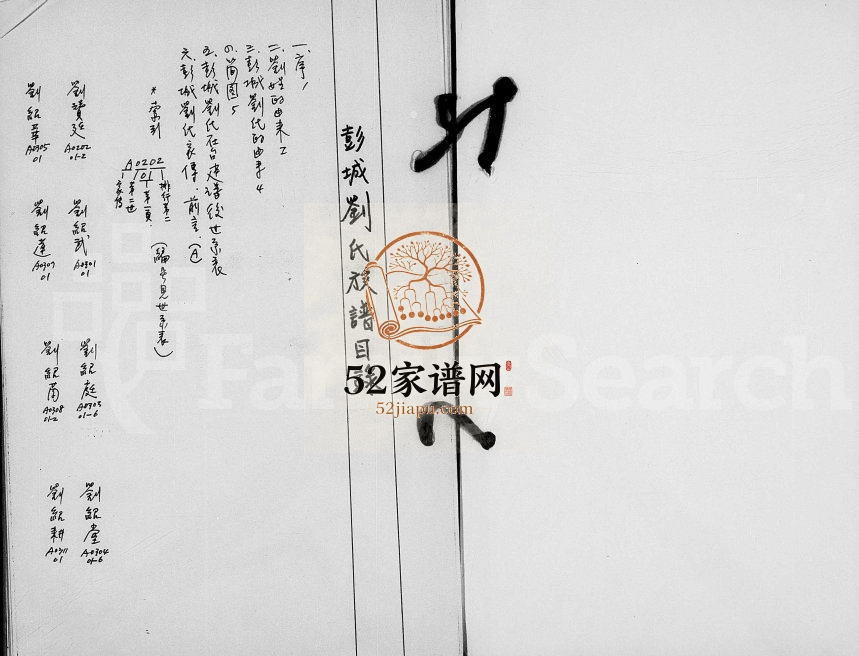 彭城劉氏族譜目錄
一、序 1
二、劉姓的由來 2
三、彭城劉氏的由來 4
四、簡圖 5
五、彭城劉氏在台建譜後世系表
六、彭城劉氏家傳．前言．(A)
* 索引
A0202
/01
排行第二
第一頁
第二世
家傳
(編號見世系表)
劉讀廷
A0202
01-2
劉紹武
A0301
01
劉紹庭
A0303
01-6
劉紹堂
A0304
01-6
劉紹華
A0305
01
劉紹蓮
A0307
01
劉紹甫
A0308
01-2
劉紹耕
A0311
01
52家谱网
52jiapu.com
FamilySearch